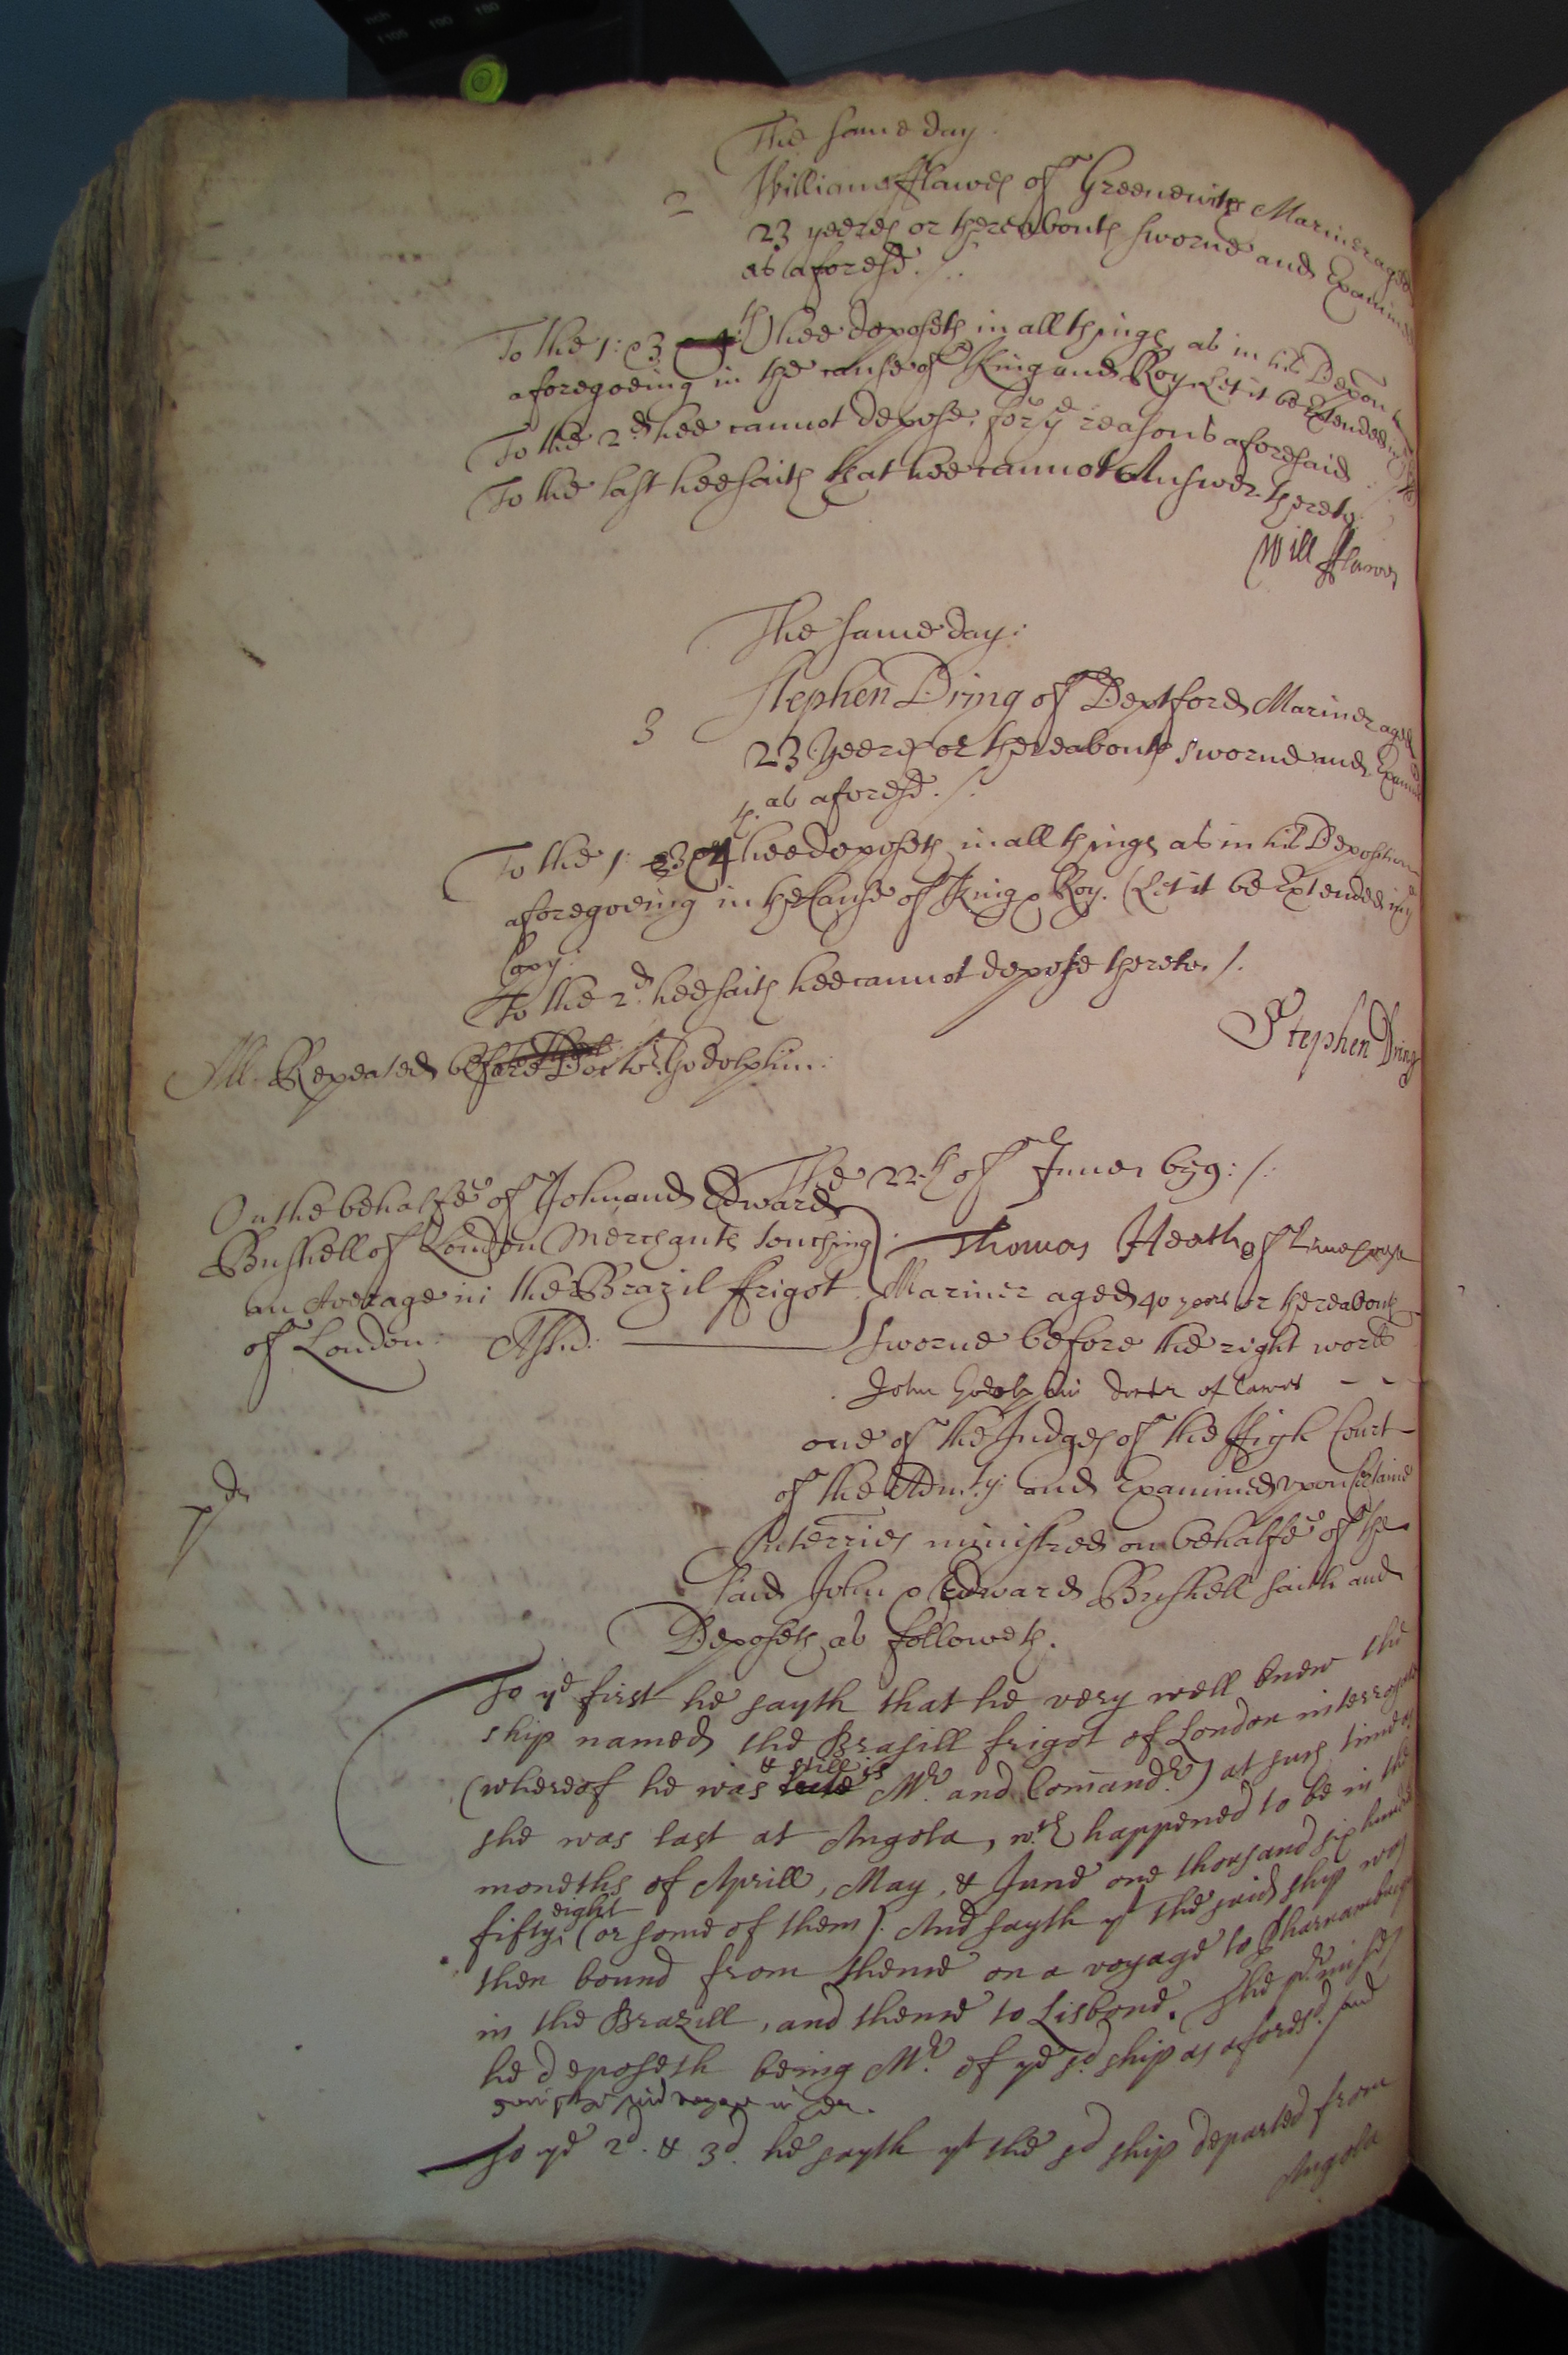 The same day.
2 William fflawes of Greenewich Mariner aged
23 yeeres or thereabouts sworne and Examined
as aforesd ./.
To the 1: & 3 th hee deposeth in all things as in his Deposn
aforegoeing in the cause of King and Roy. Let it be Extended in ye
To the 2d hee cannot depose, for ye reasons aforesaid ./.
To the last hee saith that hee cannot Answer thereto
Will fflawes
The same day:
3 Stephen Dring of Deptford Mariner aged
23 Yeeres or thereabouts sworne and Examined
as aforesd ./.
To the 1: 3 & 4 th. hee deposeth in all things as in his Deposition
aforegoeing in the Cause of King & Roy. (Let it be Extended in ye
Copy:
To the 2d. hee saith hee cannot depose thereto ./.
Stephen Dring
All Repeated before Doctor Godolphin:
The 22th of June 1659: /.
On the behalfe of John and Edward
Bushell of London Merchants touching
an Average in the Brazil ffrigot
of London:
Thomas Heath of Limehouse
Mariner aged 40 yeeres or thereabouts
sworne before the right worll
John Godolphin doctor of lawes - - -
one of the Judges of the High Court
of the Admty: and Examined upon Certaine
Interries ministred on behalfe of the
said John & Edward Bushell saith and
Deposeth as followeth.
To ye first he sayth that he very well knew the
ship named the Brasill frigot of London interrogate
(whereof he was & still is Mr. and Comandr.) at such time as
she was last at Angola, wch happened to be in the
moneths of Aprill, May, & June one thousand six hundred
fifty eight (or some of them). And sayth yt the said ship was
then bound from thence on a voyage to Pharnambuge
in the Brazill, and thence to Lisbone. The prmises
he deposeth being Mr. of ye sd ship as aforesd. and
goeing the said voyage in her.
To ye 2d. & 3d. he sayth yt the sd ship departed from
Angola